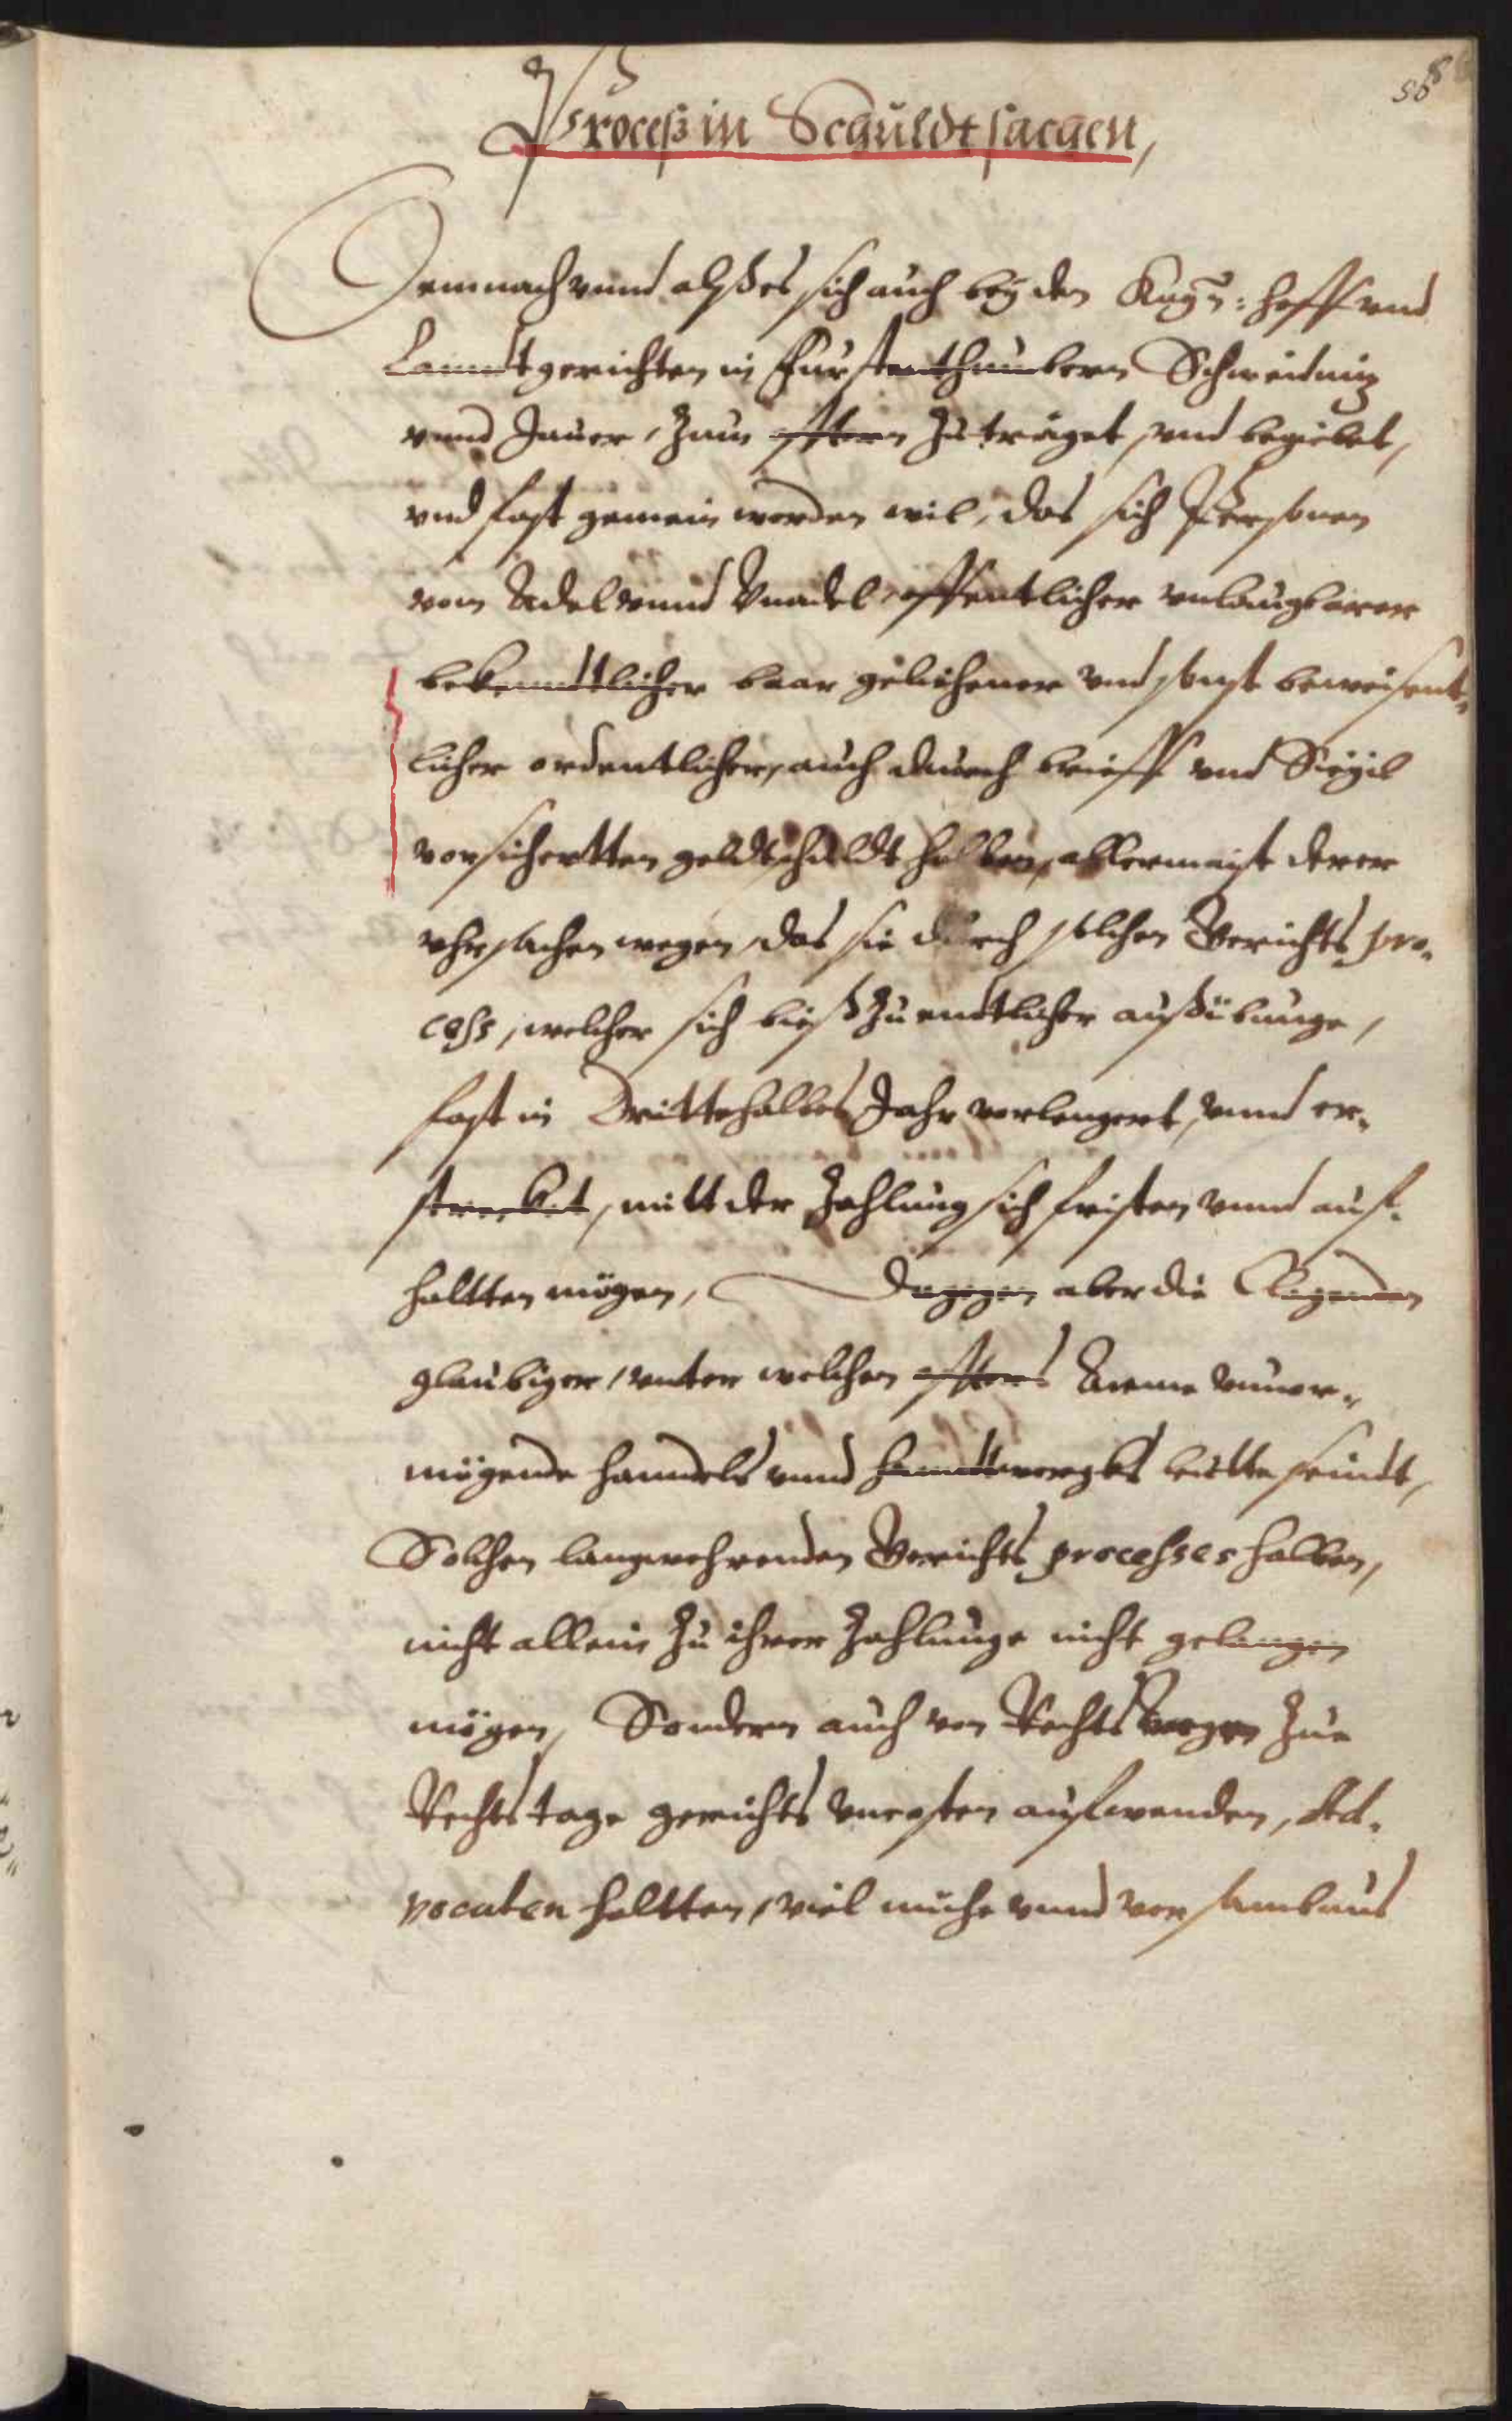 88
Proceß in Schuldtsachen,
Demnach vnnd alß es sich auch bey den Kay: Hoff vnd
Lanndtgerichten in Fürstenthumbern Schweidnitz
vnnd Jauer, Zum öfftern Zuträget, vnd begiebet,
vnd fast gemein werden wil, das sich Personen
vom Adel vnnd Vnadel offentlicher vnlaugbarer
bekenndtlicher baar gelihener vnd sonst beweisent-
licher ordentlicher, auch durch brieff vnd Siegil
vorsichertten geldtschuldt halben, allermeist derer
vhrsachen wegen, das sie durch solchen Gerichts pro-
cess, welcher sich bieß Zu endtlicher außübunge,
fast in Drittehalbes Jahr verlengert, vnnd er-
strecket, mitt der Zahlung sich fristen vnnd auf-
haltten mögen, Dagegen aber die Clagenden
glaubiger, vnter welchen offters Arme vnuer-
mögende handels vnnd handtwergks leutte seindt,
Solchen langwehrenden Gerichts processes halben,
nicht allein Zu ihrer Zahlunge nicht gelangen
mögen, Sondern auch von Rechtswegen Zue
Rechtstage gerichts vncosten aufwenden, Ad-
vocaten haltten, viel mühe vnnd vorsambnus